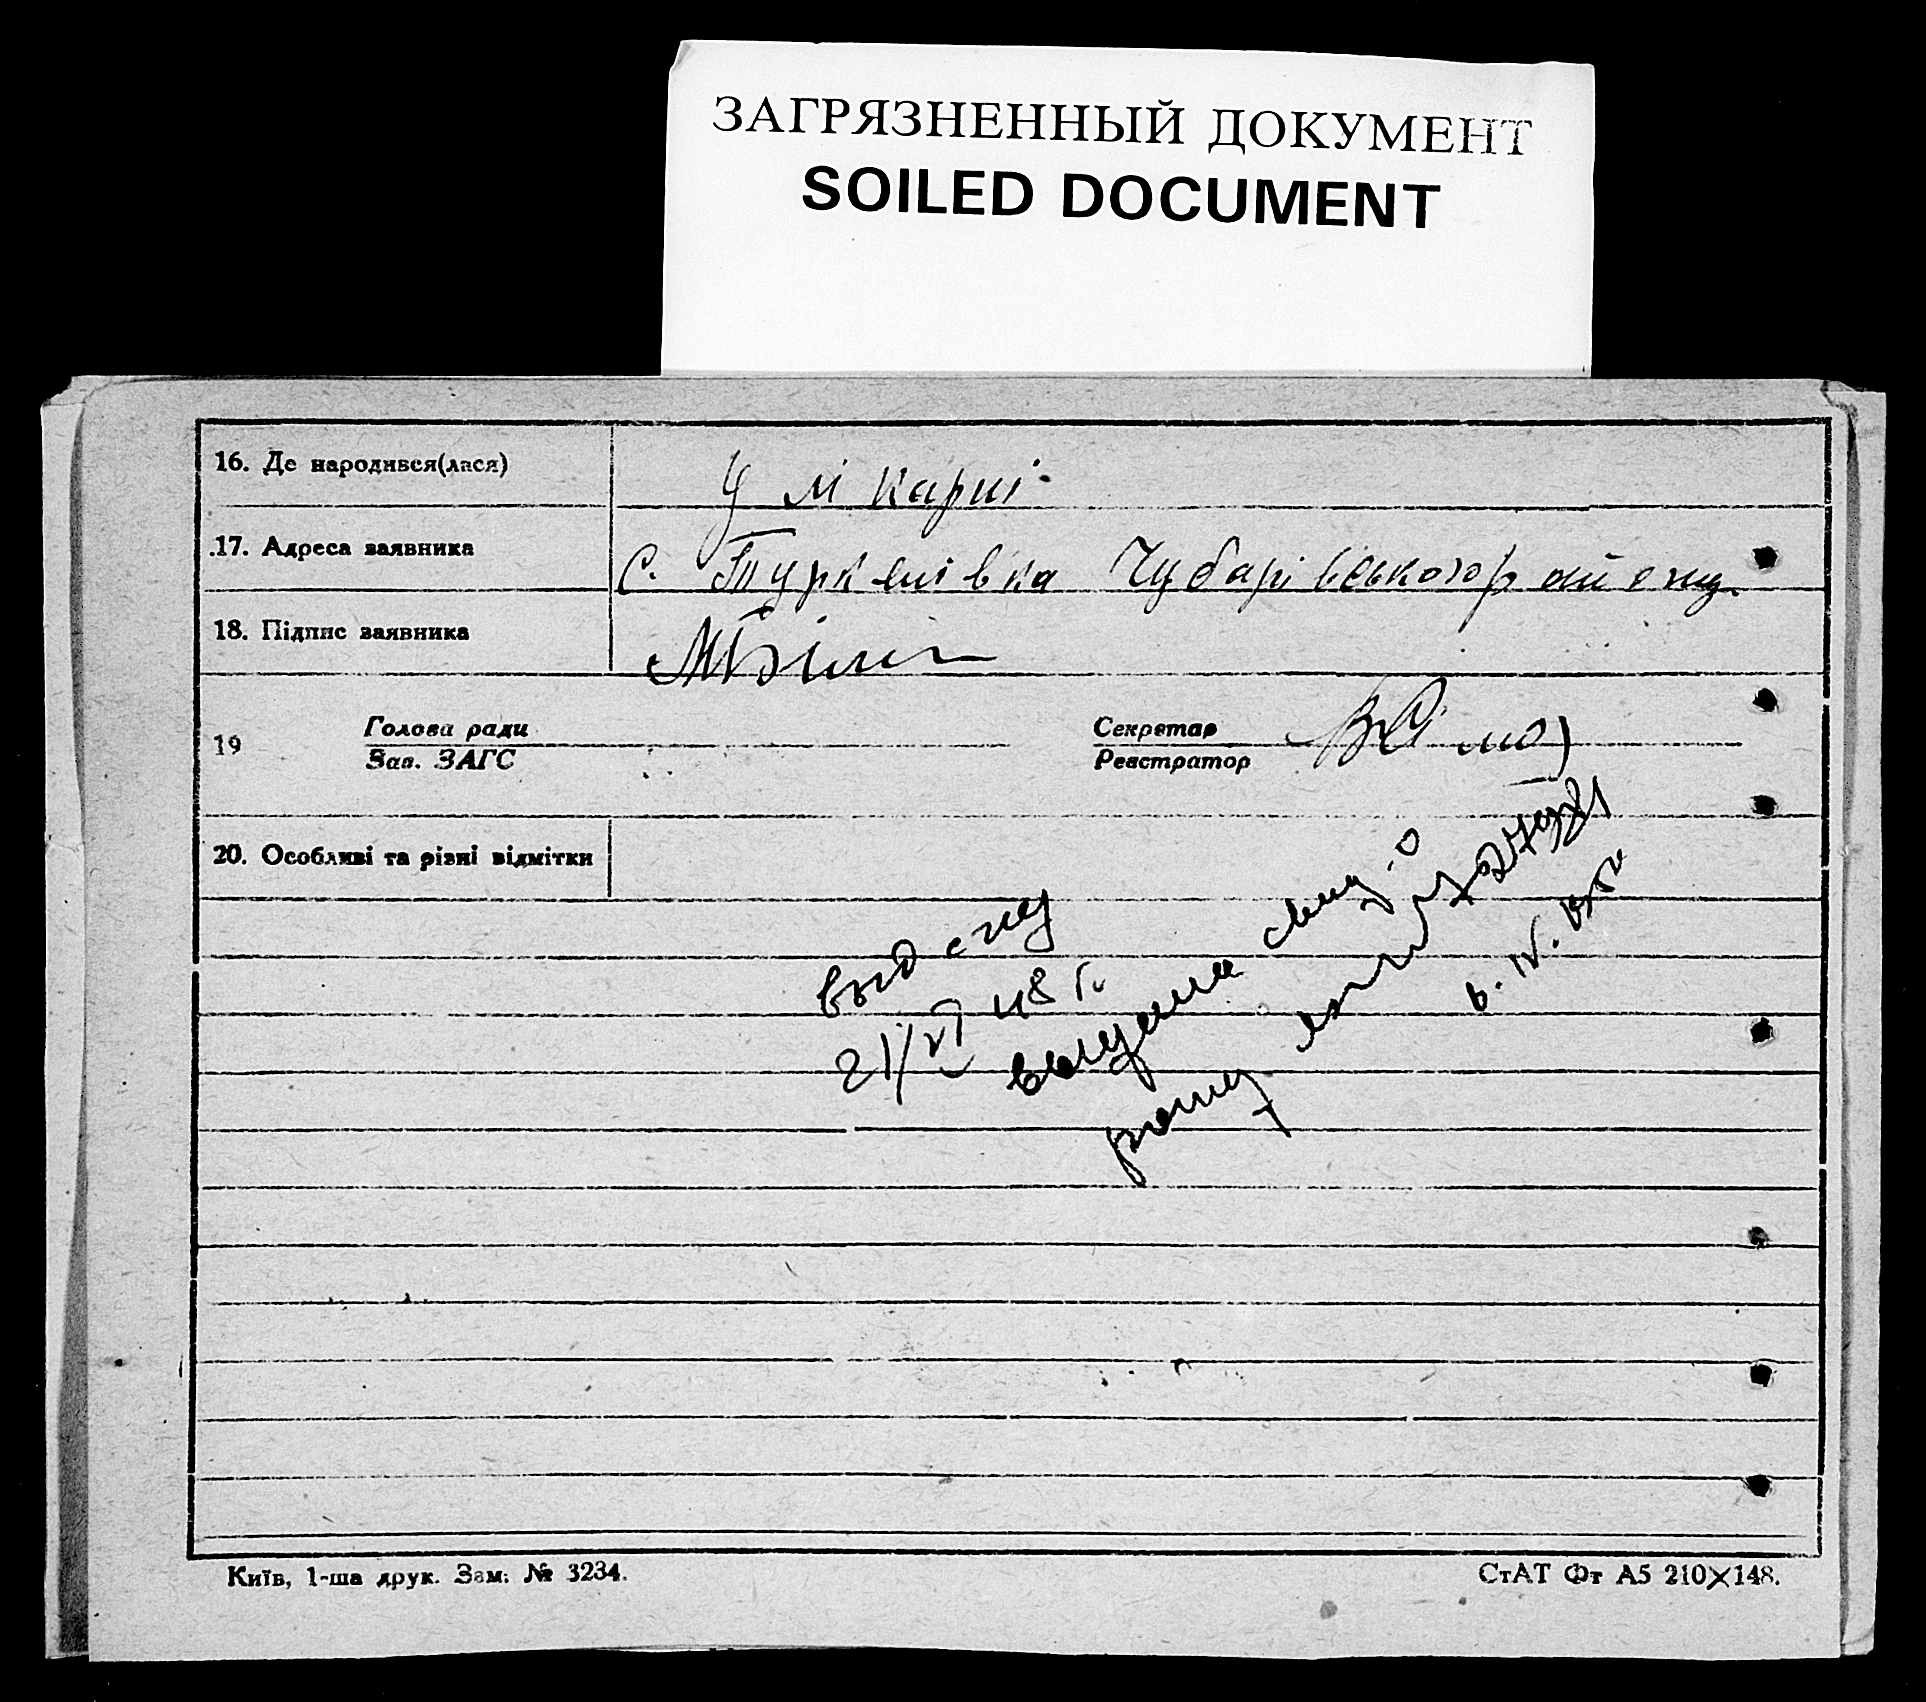 ЗАГРЯЗНЕННЫЙ ДОКУМЕНТ
SOILED DOCUMENT
16. Де народився(лася)
У лікарні
17. Адреса заявника
с. Туркенівка Чубарівського району.
18. Підпис заявника
19
Голова ради
Зав. ЗАГС
Секретар
Реєстратор
20. Особливі та різні відмітки
21/VI 48 г.
выдана свид-о
6. IV.
Київ, 1-ша друк. Зам. № 3234.
СтАТ Фт А5 210×148.